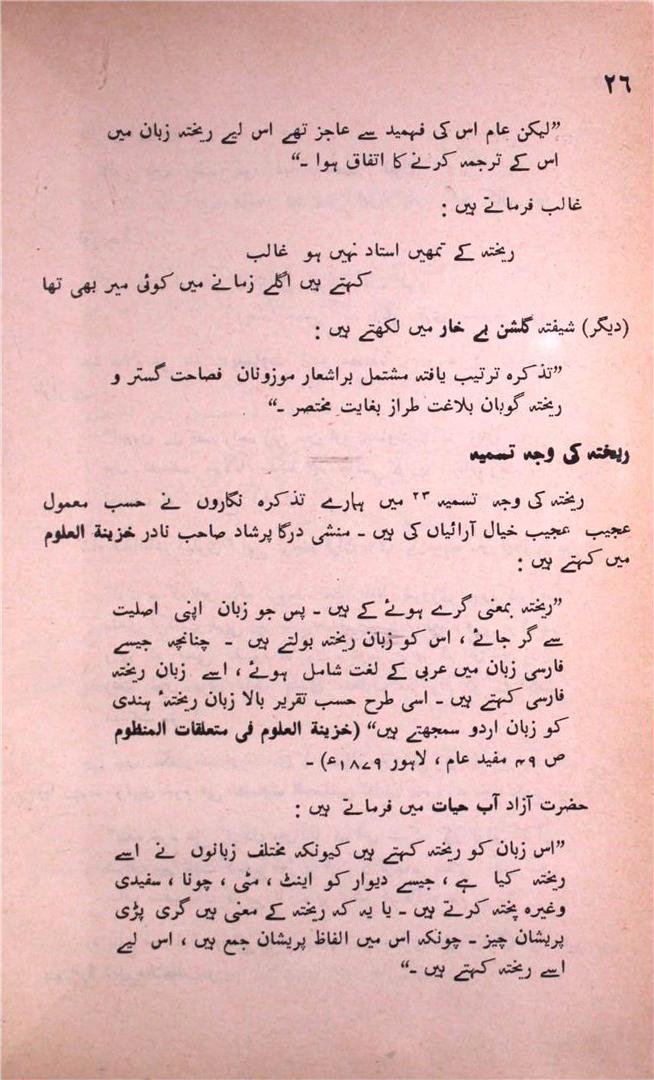 ۲۶
”لیکن عام اس کی فہمید سے عاجز تھے اس لیے ریختہ زبان میں
اس کے ترجمہ کرنے کا اتفاق ہوا ۔“
غالب فرماتے ہیں :
ریختہ کے تمھیں استاد نہیں ہو غالب
کہتے ہیں اگلے زمانے میں کوئی میر بھی تھا
(دیگر) شیفتہ گلشن بے خار میں لکھتے ہیں :
”تذکرہ ترتیب یافتہ مشتمل براشعار موزونان فصاحت گستر و
ریختہ گویان بلاغت طراز بغایت مختصر ۔“
ریختہ کی وجہ تسمیہ
ریختہ کی وجہ تسمیہ ۲۳ میں ہمارے تذکرہ نگاروں نے حسب معمول
عجیب عجیب خیال آرائیاں کی ہیں ۔ منشی درگا پرشاد صاحب نادر خزینة العلوم
میں کہتے ہیں :
”ریختہ بمعنی گرے ہوئے کے ہیں ۔ پس جو زبان اپنی اصلیت
سے گر جائے ، اس کو زبان ریختہ بولتے ہیں ۔ چنانچہ جیسے
فارسی زبان میں عربی کے لغت شامل ہوئے ، اسے زبان ریختہ
فارسی کہتے ہیں ۔ اسی طرح حسب تقریر بالا زبان ریختہٴ ہندی
کو زبان اردو سمجھتے ہیں“ (خزینة العلوم فی متعلقات المنظوم
ص ۴۹ مفید عام ، لاہور ۱۸۷۹ع) ۔
حضرت آزاد آب حیات میں فرماتے ہیں :
”اس زبان کو ریختہ کہتے ہیں کیونکہ مختلف زبانوں نے اسے
ریختہ کیا ہے ، جیسے دیوار کو اینٹ ، مٹی ، چونا ، سفیدی
وغیرہ پختہ کرتے ہیں ۔ یا یہ کہ ریختہ کے معنی ہیں گری پڑی
پریشان چیز ۔ چونکہ اس میں الفاظ پریشان جمع ہیں ، اس لیے
اسے ریختہ کہتے ہیں ۔“